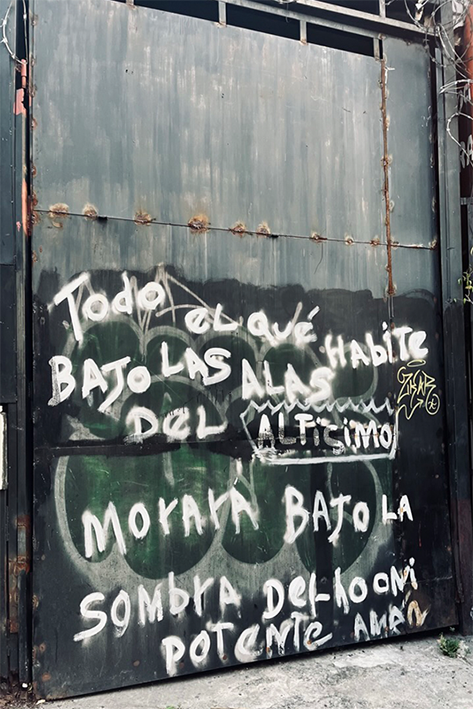 Todo el qué habite
BAJO LAS ALAS
DEL ALTICIMO
Morará BAJO LA
SOMBRA DEL hooni
POTENTE AMÉN